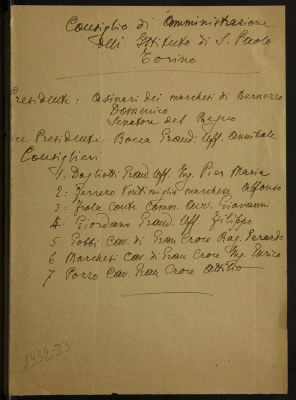 Consiglio di Amministrazione
dell'Istituto di S. Paolo
Torino
Presidente: Asinari dei marchesi di Bernezzo
Domenico
Senatore del Regno
ce Presidente. Bocca Grand. Uff. Annibale
Consiglieri
1. Dagliotti Grand Uff. Ing. Pier Maria
2: Ferrero Ventimiglia marchese Alfonso
3 = Frola conte Comm. Avv. Giovanni
4 = Giordano Grand. Uff Filippo
5 Gobbi Cav. di Gran Croce Rag. Gerardo
6 Marchesi Cav. di Gran Croce Ing. Enrico
7 Pozzo Cav. Gran Croce Attilio
1932-33